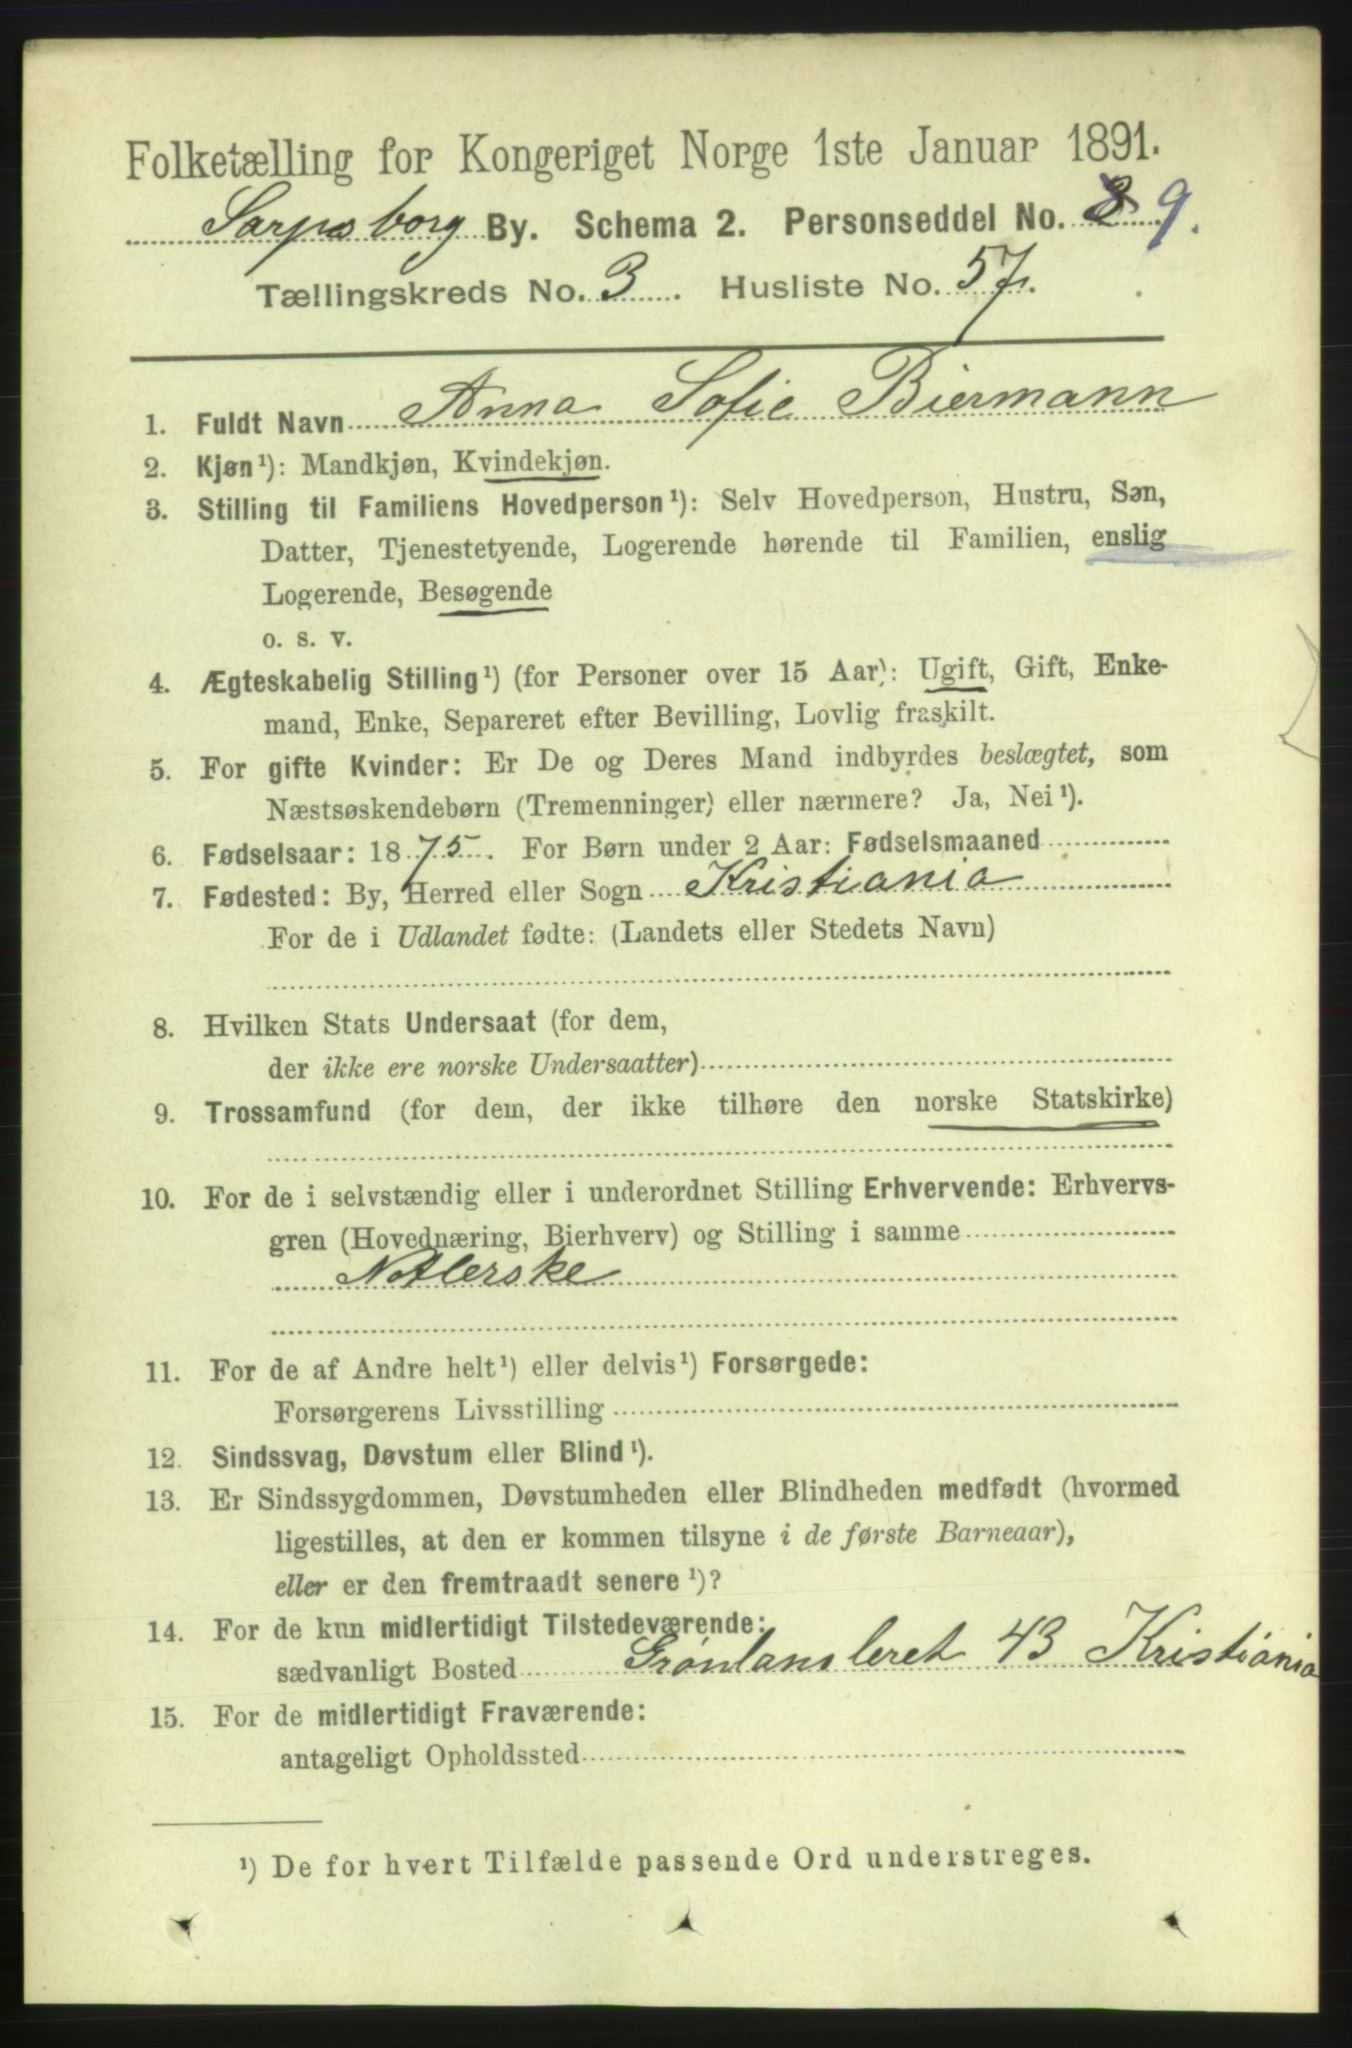 Folketælling for Kongeriget Norge 1ste Januar 1891.
Sarpsborg By. Schema 2. Personseddel No. 8 9.
Tællingskreds No. 3. Husliste No. 57.
1. Fuldt Navn Anna Sofie Biermann
2. Kjøn¹): Mandkjøn, Kvindekjøn.
3. Stilling til Familiens Hovedperson¹): Selv Hovedperson, Hustru, Søn,
Datter, Tjenestetyende, Logerende hørende til Familien, enslig
Logerende, Besøgende
o. s. v.
4. Ægteskabelig Stilling¹) (for Personer over 15 Aar): Ugift, Gift, Enke-
mand, Enke, Separeret efter Bevilling, Lovlig fraskilt.
5. For gifte Kvinder: Er De og Deres Mand indbyrdes beslægtet, som
Næstsøskendebørn (Tremenninger) eller nærmere? Ja, Nei¹).
6. Fødselsaar: 1875. For Børn under 2 Aar: Fødselsmaaned
7. Fødested: By, Herred eller Sogn Kristiania
For de i Udlandet fødte: (Landets eller Stedets Navn)
8. Hvilken Stats Undersaat (for dem,
der ikke ere norske Undersaatter)
9. Trossamfund (for dem, der ikke tilhøre den norske Statskirke)
10. For de i selvstændig eller i underordnet Stilling Erhvervende: Erhvervs-
gren (Hovednæring, Bierhverv) og Stilling i samme
11. For de af Andre helt¹) eller delvis¹) Forsørgede:
Forsørgerens Livsstilling
12. Sindssvag, Døvstum eller Blind¹).
13. Er Sindssygdommen, Døvstumheden eller Blindheden medfødt (hvormed
ligestilles, at den er kommen tilsyne i de første Barneaar),
eller er den fremtraadt senere¹)?
14. For de kun midlertidigt Tilstedeværende:
sædvanligt Bosted Grønlansleret 43 Kristiania
15. For de midlertidigt Fraværende:
antageligt Opholdssted
¹) De for hvert Tilfælde passende Ord understreges.